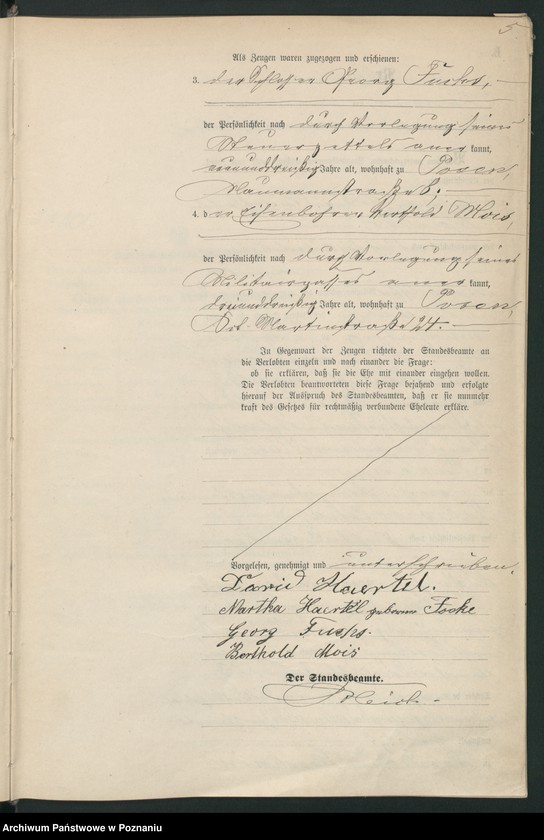 5
Als Zeugen waren zugezogen und erschienen:
3. der Schlosser Georg Fuchs,
der Persönlichkeit nach durch Vorlegung seines
Steuerzettels aner kannt,
neununddreißig Jahre alt, wohnhaft zu Posen,
Naumannstraße 6;
4. der Eisenbohrer Berthold Mois,
der Persönlichkeit nach durch Vorlegung seines
Militairpasses aner kannt,
dreiunddreißig Jahre alt, wohnhaft zu Posen,
Skt. Martinstraße 24.
In Gegenwart der Zeugen richtete der Standesbeamte an
die Verlobten einzeln und nach einander die Frage:
ob sie erklären, daß sie die Ehe mit einander eingehen wollen.
Die Verlobten beantworteten diese Frage bejahend und erfolgte
hierauf der Ausspruch des Standesbeamten, daß er sie nunmehr
kraft des Gesetzes für rechtmäßig verbundene Eheleute erkläre.
Vorgelesen, genehmigt und unterschrieben.
David Haertel.
Martha Haertel geborene Fooke
Georg Fuchs.
Berthold Mois
Der Standesbeamte.
Archiwum Państwowe w Poznaniu